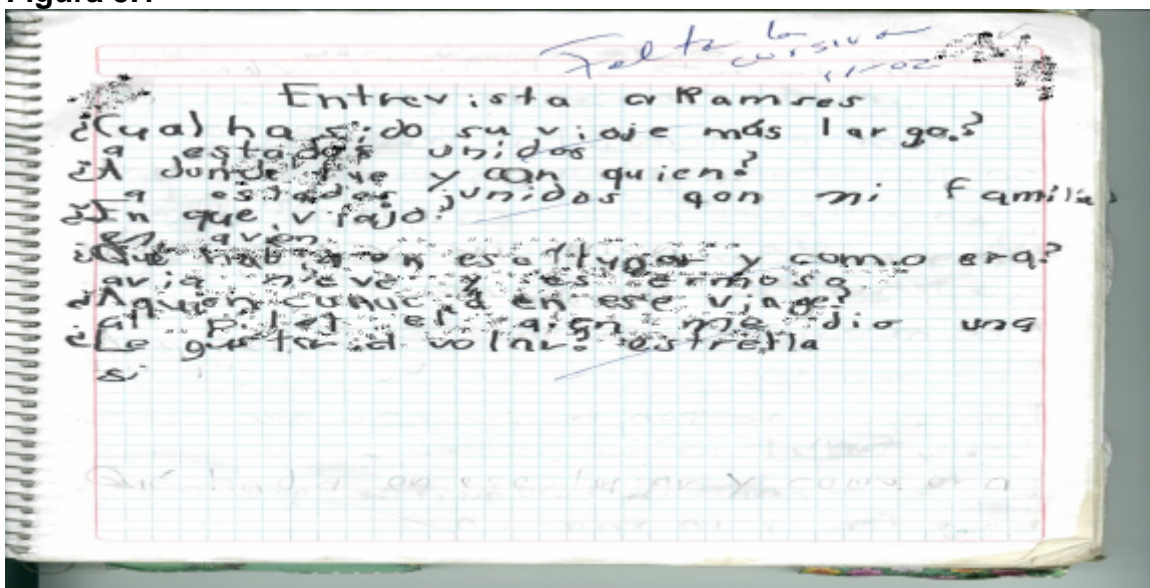 Falta la
cursiva
11-02
Entrevista a Ramses
¿Cual ha sido su viaje más largo?
a estados unidos
¿A dunde fue y con quien?
a estados unidos qon mi familia
¿En que viajo?
en aven
¿Que habia en ese lugar y como era?
avia nieve y es ermoso
¿A quien cunucio en ese viage?
al pilot el qien me dio una
¿Le gustaria volar? estrella
si
Qué había en ese lugar y como era